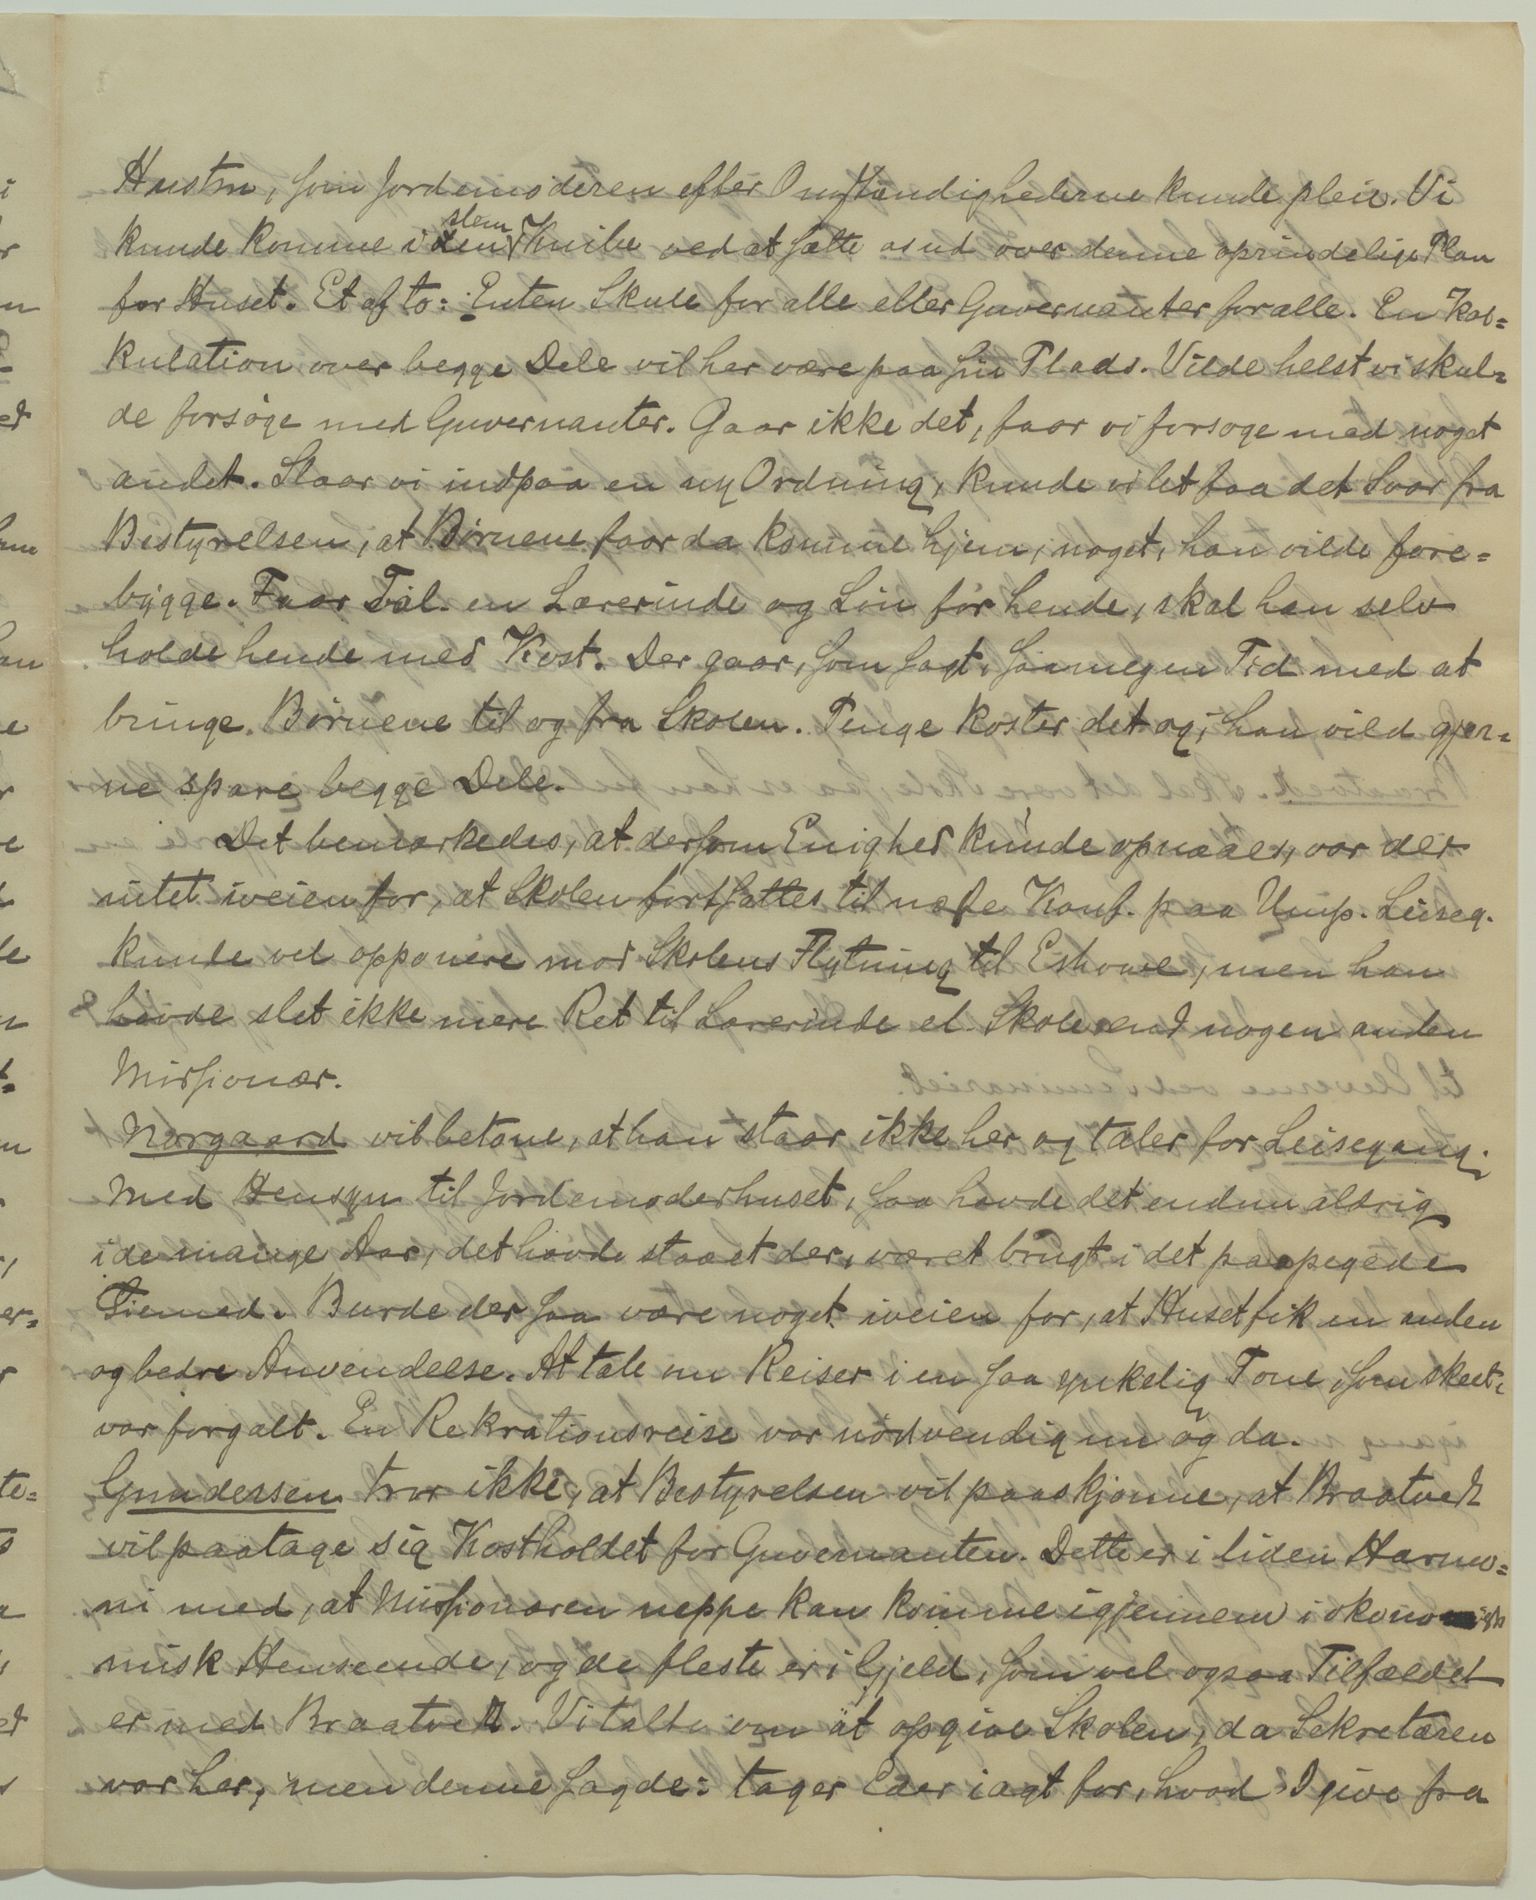 Hustru, som Jordemoderen efter Omstændighederne kunde pleie. Vi
kunde komme i den slem Knibe ved at sætte os ud over denne oprindelige Plan
for Huset. Et af to: Enten Skole for alle eller Guvernanter for alle. En Kal=
kulation over begge Dele vil her være paa sin Plads. Vilde helst vi skul=
de forsøge med Guvernanter. Gaar ikke det, faar vi forsøge med noget
andet. Slaar vi ind paa en ny Ordning, kunde vi let faa det Svar fra
Bestyrelsen, at Børnene faar da komme hjem, noget, han vilde fore=
bygge. Faar Tal. en Lærerinde og Løn for hende, skal han selv
holde hende med Kost. Der gaar, som sagt, saa megen Tid med at
bringe Børnene til og fra Skolen. Penge koster det og; han vild gjer=
ne spare begge Dele.
Det bemærkedes, at dersom Enighed kunde opnaaes, var der
intet iveien for, at Skolen fortsattes til næste Konf. paa Ump. Leiseg.
kunde vel opponere mod Skolens Flytning til Eshowe, men han
havde slet ikke mere Ret til Lærerinde el. Skole end nogen anden
Missionær.
Nørgaard vil betone, at han staar ikke her og taler for Leisegang.
Med Hensyn til Jordemoderhuset, saa havde det endnu aldrig
i de mange Aar, det havde staaet der, været brugt i det paapegede
Øiemed. Burde der saa være noget iveien for, at Huset fik en anden
og bedre Anvendelse. At tale om Reiser i en saa ynkelig Tone, som skeet,
var forgalt. En Rekrationsreise var nødvendig nu og da.
Gundersen tror ikke, at Bestyrelsen vil paaskjønne, at Braatvedt
vil paatage sig Kostholdet for Guvernanten. Dette er i liden Harmo=
ni med, at Missionæren neppe kan komme igjennem i økono
misk Henseende, og de fleste er i Gjeld, som vel ogsaa Tilfældet
er med Braatvedt. Vi talte om at opgive Skolen, da Sekretæren
var her, men denne sagde: tager Eder iagt for, hvad I give fra